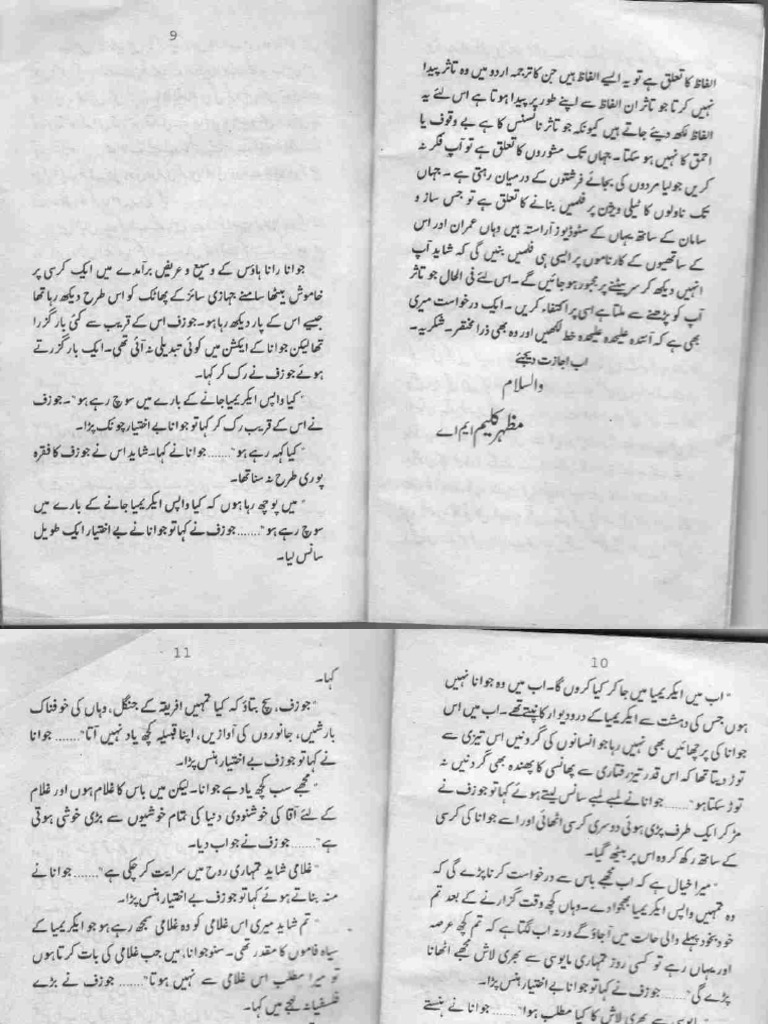 الفاظ کا تعلق ہے تو یہ ایسے الفاظ ہیں جن کا ترجمہ اردو میں وہ تاثر پیدا
نہیں کرتا جو تاثر ان الفاظ سے اپنے طور پر پیدا ہوتا ہے اس لئے یہ
الفاظ لکھ دیئے جاتے ہیں کیونکہ جو تاثر نانسنس کا ہے بے وقوف یا
احمق کا نہیں ہو سکتا۔ جہاں تک مشوروں کا تعلق ہے تو آپ فکر نہ
کریں جولیا مردوں کی بجائے فرشتوں کے درمیان رہتی ہے۔ جہاں
تک ناولوں کا ٹیلی ویژن پر فلمیں بنانے کا تعلق ہے تو جس ساز و
سامان کے ساتھ یہاں کے سٹوڈیوز آراستہ ہیں وہاں عمران اور اس
کے ساتھیوں کے کارناموں پر ایسی ہی فلمیں بنیں گی کہ شاید آپ
انہیں دیکھ کر سر پیٹنے پر مجبور ہو جائیں گے۔ اس لئے فی الحال جو تاثر
آپ کو پڑھنے سے ملتا ہے اسی پر اکتفاء کریں۔ ایک درخواست میری
بھی ہے کہ آئندہ علیحدہ علیحدہ خط لکھیں اور وہ بھی ذرا مختصر۔ شکریہ۔
اب اجازت دیجئے
والسلام
مظہر کلیم ایم اے
9
جوانا رانا ہاؤس کے وسیع و عریض برآمدے میں ایک کرسی پر
خاموش بیٹھا سامنے جہازی سائز کے پھاٹک کو اس طرح دیکھ رہا تھا
جیسے اس کے پار دیکھ رہا ہو۔ جوزف اس کے قریب سے کئی بار گزرا
تھا لیکن جوانا کے ایکشن میں کوئی تبدیلی نہ آئی تھی۔ ایک بار گزرتے
ہوئے جوزف نے رک کر کہا۔
"کیا واپس ایکریمیا جانے کے بارے میں سوچ رہے ہو"۔ جوزف
نے اس کے قریب رک کر کہا تو جوانا بے اختیار چونک پڑا۔
"کیا کہہ رہے ہو"....... جوانا نے کہا۔ شاید اس نے جوزف کا فقرہ
پوری طرح نہ سنا تھا۔
"میں پوچھ رہا ہوں کہ کیا واپس ایکریمیا جانے کے بارے میں
سوچ رہے ہو"....... جوزف نے کہا تو جوانا نے بے اختیار ایک طویل
سانس لیا۔
10
"اب میں ایکریمیا میں جا کر کیا کروں گا۔ اب میں وہ جوانا نہیں
ہوں جس کی دہشت سے ایکریمیا کے در و دیوار کانپتے تھے۔ اب میں اس
جوانا کی پرچھائیں بھی نہیں رہا جو انسانوں کی گردنیں اس تیزی سے
توڑ دیتا تھا کہ اس قدر تیز رفتاری سے پھانسی کا پھندہ بھی گردنیں نہ
توڑ سکتا ہو"....... جوانا نے لمبے لمبے سانس لیتے ہوئے کہا تو جوزف نے
مڑ کر ایک طرف پڑی ہوئی دوسری کرسی اٹھائی اور اسے جوانا کی کرسی
کے ساتھ رکھ کر وہ اس پر بیٹھ گیا۔
"میرا خیال ہے کہ اب مجھے باس سے درخواست کرنا پڑے گی کہ
وہ تمہیں واپس ایکریمیا بھجوا دے۔ وہاں کچھ وقت گزارنے کے بعد تم
خود بخود پہلے والی حالت میں آ جاؤ گے ورنہ اب لگتا ہے کہ تم کچھ عرصہ
اور یہاں رہے تو کسی روز تمہاری مایوسی سے بھری لاش مجھے اٹھانا
پڑے گی"....... جوزف نے کہا تو جوانا بے اختیار ہنس پڑا۔
سے بھری لاش کا کیا مطلب ہوا"....... جوانا نے ہنستے
11
کہا۔
"جوزف، سچ بتاؤ کہ کیا تمہیں افریقہ کے جنگل، وہاں کی خوفناک
بارشیں، جانوروں کی آوازیں، اپنا قبیلہ کچھ یاد نہیں آتا"....... جوانا
نے کہا تو جوزف بے اختیار ہنس پڑا۔
"مجھے سب کچھ یاد ہے جوانا۔ لیکن میں باس کا غلام ہوں اور غلام
کے لئے آقا کی خوشنودی دنیا کی تمام خوشیوں سے بڑی خوشی ہوتی
ہے"....... جوزف نے جواب دیا۔
"غلامی شاید تمہاری روح میں سرایت کر چکی ہے"....... جوانا نے
منہ بناتے ہوئے کہا تو جوزف بے اختیار ہنس پڑا۔
"تم شاید میری اس غلامی کو وہ غلامی سمجھ رہے ہو جو ایکریمیا کے
سیاہ فاموں کا مقدر تھی۔ سنو جوانا، میں جب غلامی کی بات کرتا ہوں
تو میرا مطلب اس غلامی سے نہیں ہوتا"....... جوزف نے بڑے
فلسفیانہ لہجے میں کہا۔